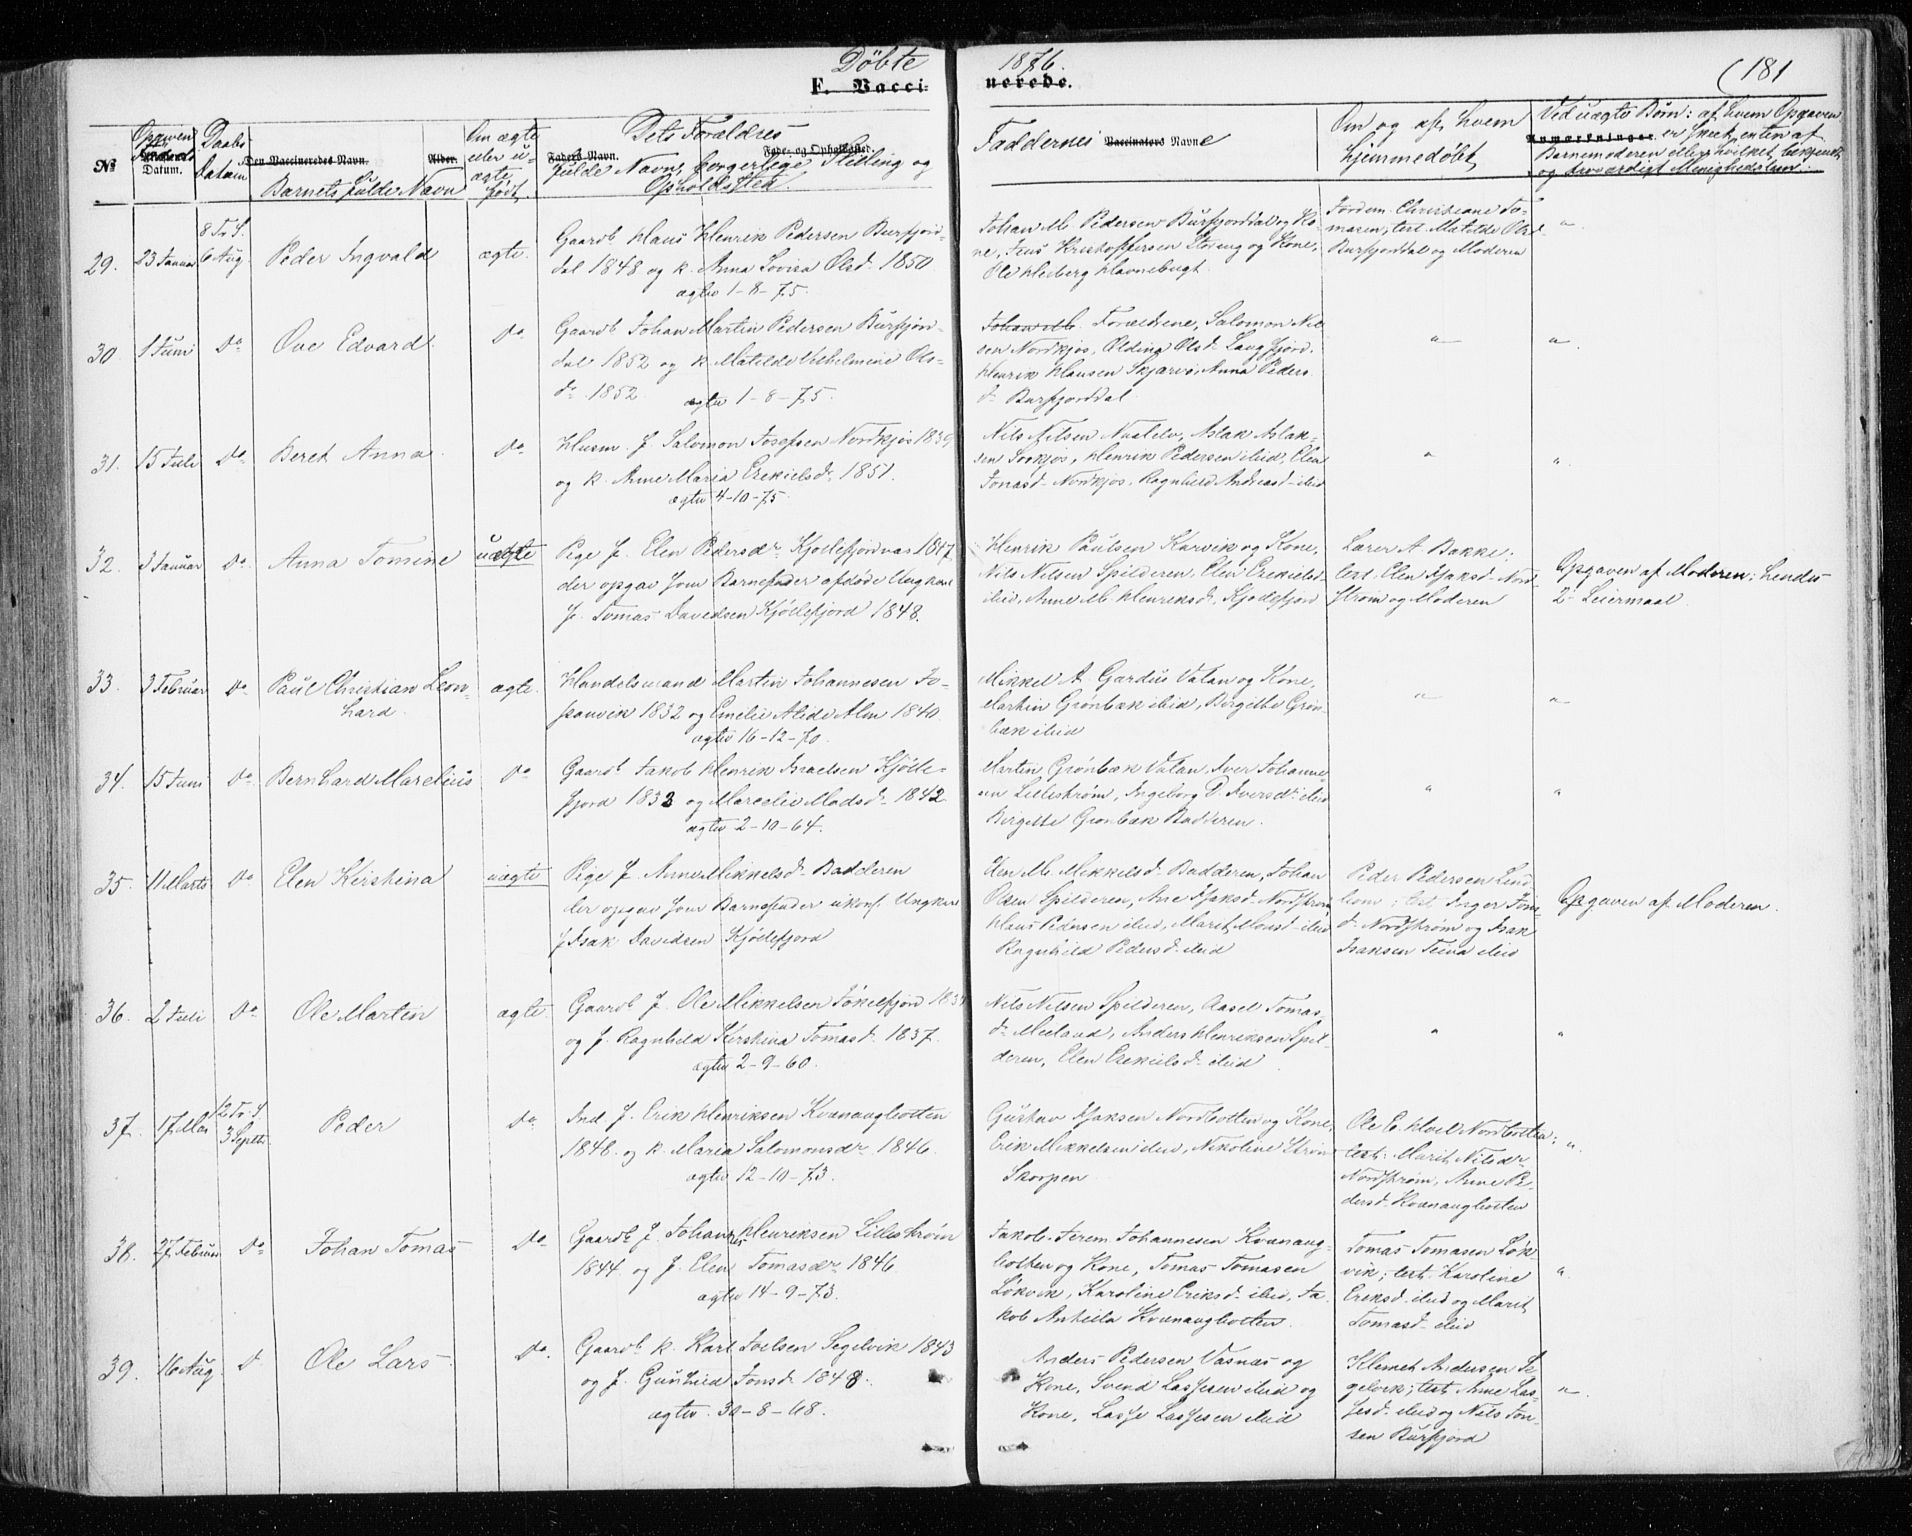 Döbte 1876.
F. Vaccinerede.
(181
№
Opgiven
Datum.
Daabs
Datum
Den Vaccineredes Navn. Alder.
Barnets fulde Navn
Om ægte
eller u-
ægte
født.
Dets Forældres
Faders Navn. Føde- og Opholdssted.
fulde Navn, borgerlige Stilling og
Opholdssted.
Faddernes Vaccinators Navne
Om og af hvem
hjemmedøbt
Ved uægte Børn: af hvem Opgaven
Anmærkninger. er skeet, enten af
Barnemoderen eller hvilket bekjendt
og troværdigt Menighedslem.
29.
23 Januar
8 Tr. S.
6 Aug
Peder Ingvald
ægte.
Gaardb Hans Henrik Pedersen Burfjord-
dal 1848 og k. Anna Lovisa Olsd. 1850
ægtev 1-8-75.
Johan M. Pedersen Burfjorddal og Ko-
ne, Jens Kristoffersen Storeng og Kone,
Ole Heiberg Havnebugt.
Jordem. Christiane To-
maren; test Matilde Olsd
Burfjorddal og Moderen
"
30.
1 Juni
Do
Ove Edvard.
Do
Gaardb Johan Martin Pedersen Burfjord-
dal 1852 og k. Matilde Vilhelmine Ols-
dr. 1852.
ægtev 1-8-75.
Johan M. Forældrene, Salomon Nil-
sen Nordkjos, Oldina Olsd. Langfjord.
Henrik Hansen Skjærvø, Anna Peders
d. Burfjorddal.
"
"
31.
15 Juli
Do
Beret Anna
Do
Husm. J. Salomon Josefsen Nordkjos 1839
og k. Anne Maria Ezekielsd. 1851.
ægtev 4-10-75.
Nils Nilsen, Aslak Aslak-
sen Sorkjos, Henrik Pedersen ibid, Elen
Jonasd. Nordkjos, Ragnhild Andreasd. ibid
"
"
32.
3 Januar
Do
Anna Tomine
uægte
Pige J. Elen Pedersdr. Kjøllefjordnæs 1847
der opgav som Barnefader afdøde Ungkarl
J. Tomas Davidsen Kjøllefjord 1848.
Henrik Paulsen Karvik og Kone,
Nils Nilsen Spilderen, Elen Ezekielsd
ibid, Anne M. Henriksd. Kjøllefjord
Lærer A. Bakke;
test. Elen Isaksd. Nord-
strøm og Moderen
Opgaven af Moderen; hendes
2d Leiermaal.
33.
3 Februar
Do
Paul Christian Leon-
hard.
ægte.
Handelsmand Martin Johannesen Jo-
kanvik 1832 og Emelie Alide Alm 1840.
ægtev 16-12-70.
Mikkel A. Gardius Vatan og Kone,
Martin Grønbæk ibid, Birgitte Grøn-
bæk ibid
"
"
34.
15 Juni
Do
Bernhard Marelius
Do
Gaardb Jakob Henrik Israelsen Kjølle-
fjord 1833 og Marcelie Madsd. 1842
ægtev 2-10-64.
Martin Grønbæk Vatan, Iver Johanne-
sen Lillestrøm, Ingeborg D. Iversd. ibid
Birgitte Grønbæk Badderen.
"
"
35.
11 Marts
Do
Elen Kirstina
uægte
Pige J. Anne Mikkelsd. Badderen
der opgav som Barnefader ukonf. Ungkarl
J. Isak Davidsen Kjøllefjord
Elen M. Mikkelsd. Badderen, Johan
Olsen Spilderen, Ane Isaksd. Nordstrøm
Hans Pedersen ibid, Marit Monsd. ibid
Ragnhild Pedersd. ibid
Peder Pedersen Lind
bom; test Inger Tom-
d. Nordstrøm og Isak
Isaksen ibid
Opgaven af Moderen.
36.
2 Juli
Do
Ole Martin
ægte.
Gaardb J. Ole Mikkelsen Jøkelfjord
og J. Ragnhild Kirstina Tomasd. 1837.
ægtev 2-9-60.
Nils Nilsen Spilderen, Aasel Tomas
d. Meiland, Anders Henriksen Spil-
deren, Elen Ezekielsd. ibid
"
"
37.
17 Mai
12 Tr. S
3 Septbr
Peder
Do
Ind J. Erik Henriksen Kvænangbotten
1848. og k. Maria Salomonsdr. 1846.
ægtev 12-10-73.
Gustav Isaksen Nordbotten og Kone,
Erik Mikkelsen ibid, Nikoline Strøm
Skorpen
Ole E. Hoel Nordbotten;
test: Marit Nilsdr.
Nordstrøm, Anne Pe-
dersd. Kvænangbotten
"
38.
27 Februar
Do
Johan Tomas
Do
Gaardb J. Johannes Henriksen Lillestrøm
1844. og J. Elen Tomasdr. 1846.
ægtev 14-9-73.
Jakob Jerem. Johannesen Kvænang-
botten og Kone, Tomas Tomasen
Løkvik, Karoline Eriksd. ibid, Ja-
kob Antilla Kvænangbotten.
Tomas Tomasen Løk
vik; test. Karoline
Eriksd. ibid og Marit
Tomasd. ibid
"
39.
16 Aug
D.
Ole Lars
Do.
Gaardb k. Karl Joelsen Segelvik 1843
og J. Gunhild Jonsd. 1848.
ægtev. 30-8-68.
Anders Pedersen Vasnæs og
Kone, Svend Lassesen ibid og
Kone, Lasse Lassesen ibid
Klemet Andersen Se-
gelvik; test Anne Las-
sesd. ibid og Nils Jon-
sen Burfjord
"